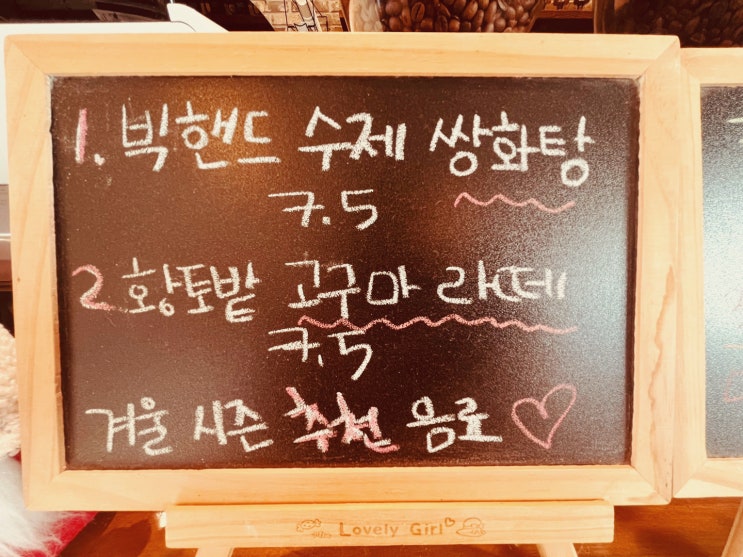 1. 빅핸드 수제 쌍화탕
7.5
2. 황토밭 고구마 라떼
7.5
겨울 시즌 추천 음료 ♡
Lovely Girl